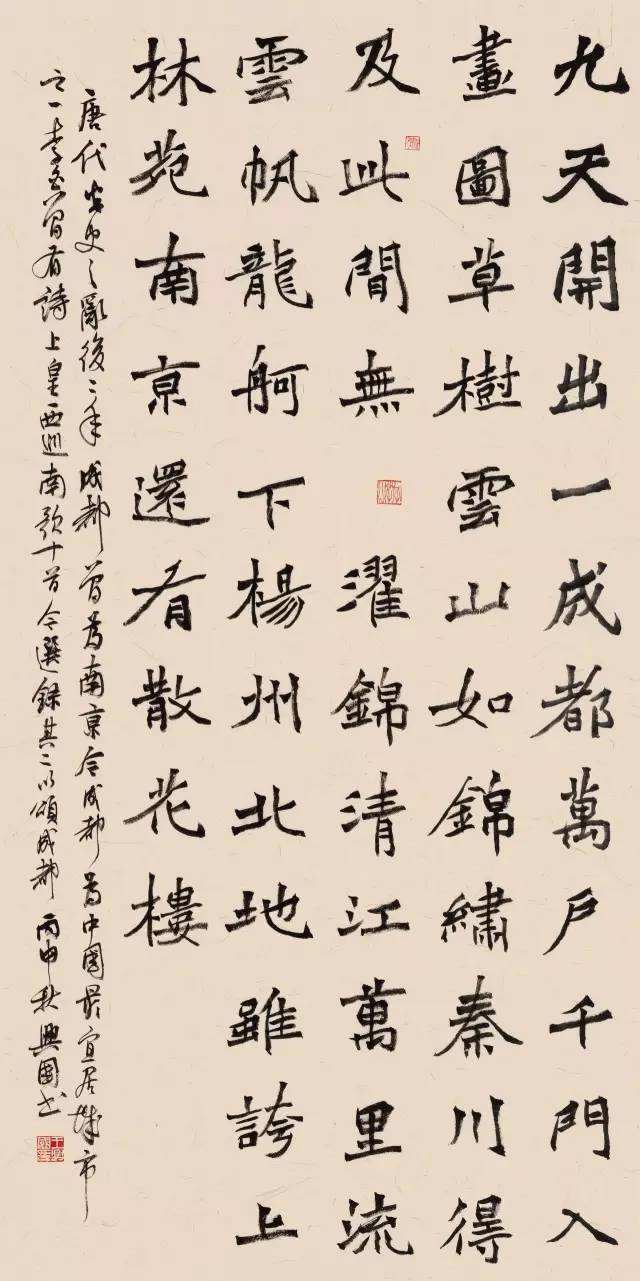 九天開出一成都萬戶千門入
畫圖草樹雲山如錦繡秦川得
及此間無 濯錦清江萬里流
雲帆龍舸下楊州北地雖誇上
林苑南京還有散花樓
唐代安史之亂後二年成都曾為南京今成都為中國最宜居城市
之一李白曾有詩上皇西巡南歌十首今選錄其二以頌成都 丙申秋興國书